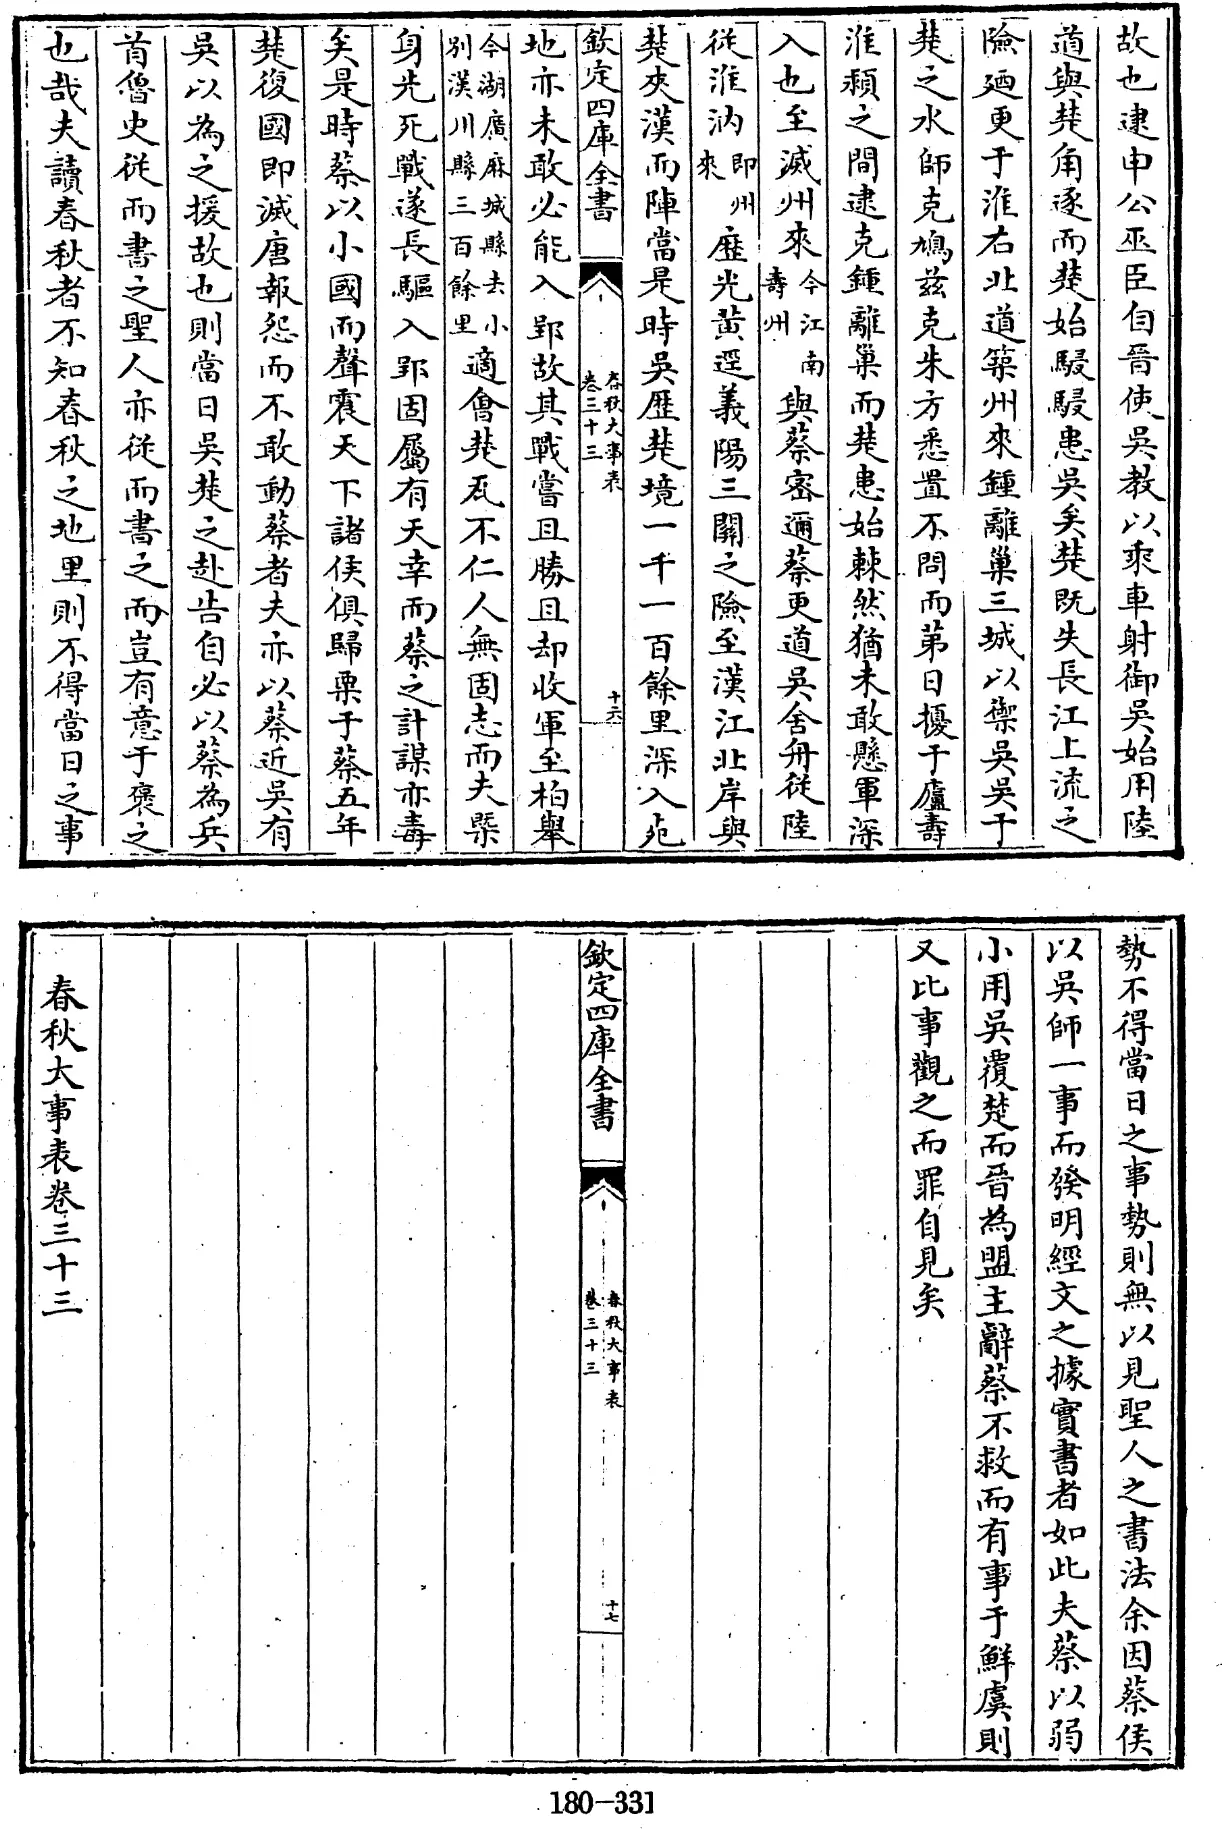 故也逮申公巫臣自晉使吳教以乘車射御吳始用陸
道與楚角逐而楚始駸駸患吳矣楚既失長江上流之
險廼更于淮右北道築州來鍾離巢三城以禦吳吳于
楚之水師克鳩茲克朱方悉置不問而第日擾于廬壽
淮潁之間逮克鍾離巢而楚患始棘然猶未敢懸軍深
入也至滅州來今江南壽州與蔡密邇蔡更道吳舍舟從陸
從淮汭即州來歷光黃逕義陽三關之險至漢江北岸與
楚夾漢而陣當是時吳歷楚境一千一百餘里深入死
欽定四庫全書
春秋大事表
卷三十三
十六
地亦未敢必能入郢故其戰嘗且勝且却收軍至柏舉
今湖廣麻城縣去小別漢川縣三百餘里適會楚瓦不仁人無固志而夫槩
身先死戰遂長驅入郢固屬有天幸而蔡之計謀亦毒
矣是時蔡以小國而聲震天下諸侯俱歸粟于蔡五年
楚復國即滅唐報怨而不敢動蔡者夫亦以蔡近吳有
吳以為之援故也則當日吳楚之赴告自必以蔡為兵
首魯史從而書之聖人亦從而書之而豈有意于褒之
也哉夫讀春秋者不知春秋之地里則不得當日之事
勢不得當日之事勢則無以見聖人之書法余因蔡侯
以吳師一事而發明經文之據實書者如此夫蔡以弱
小用吳覆楚而晉為盟主辭蔡不救而有事于鮮虞則
又比事觀之而罪自見矣
欽定四庫全書
春秋大事表
卷三十三
十七
春秋大事表卷三十三
180-331